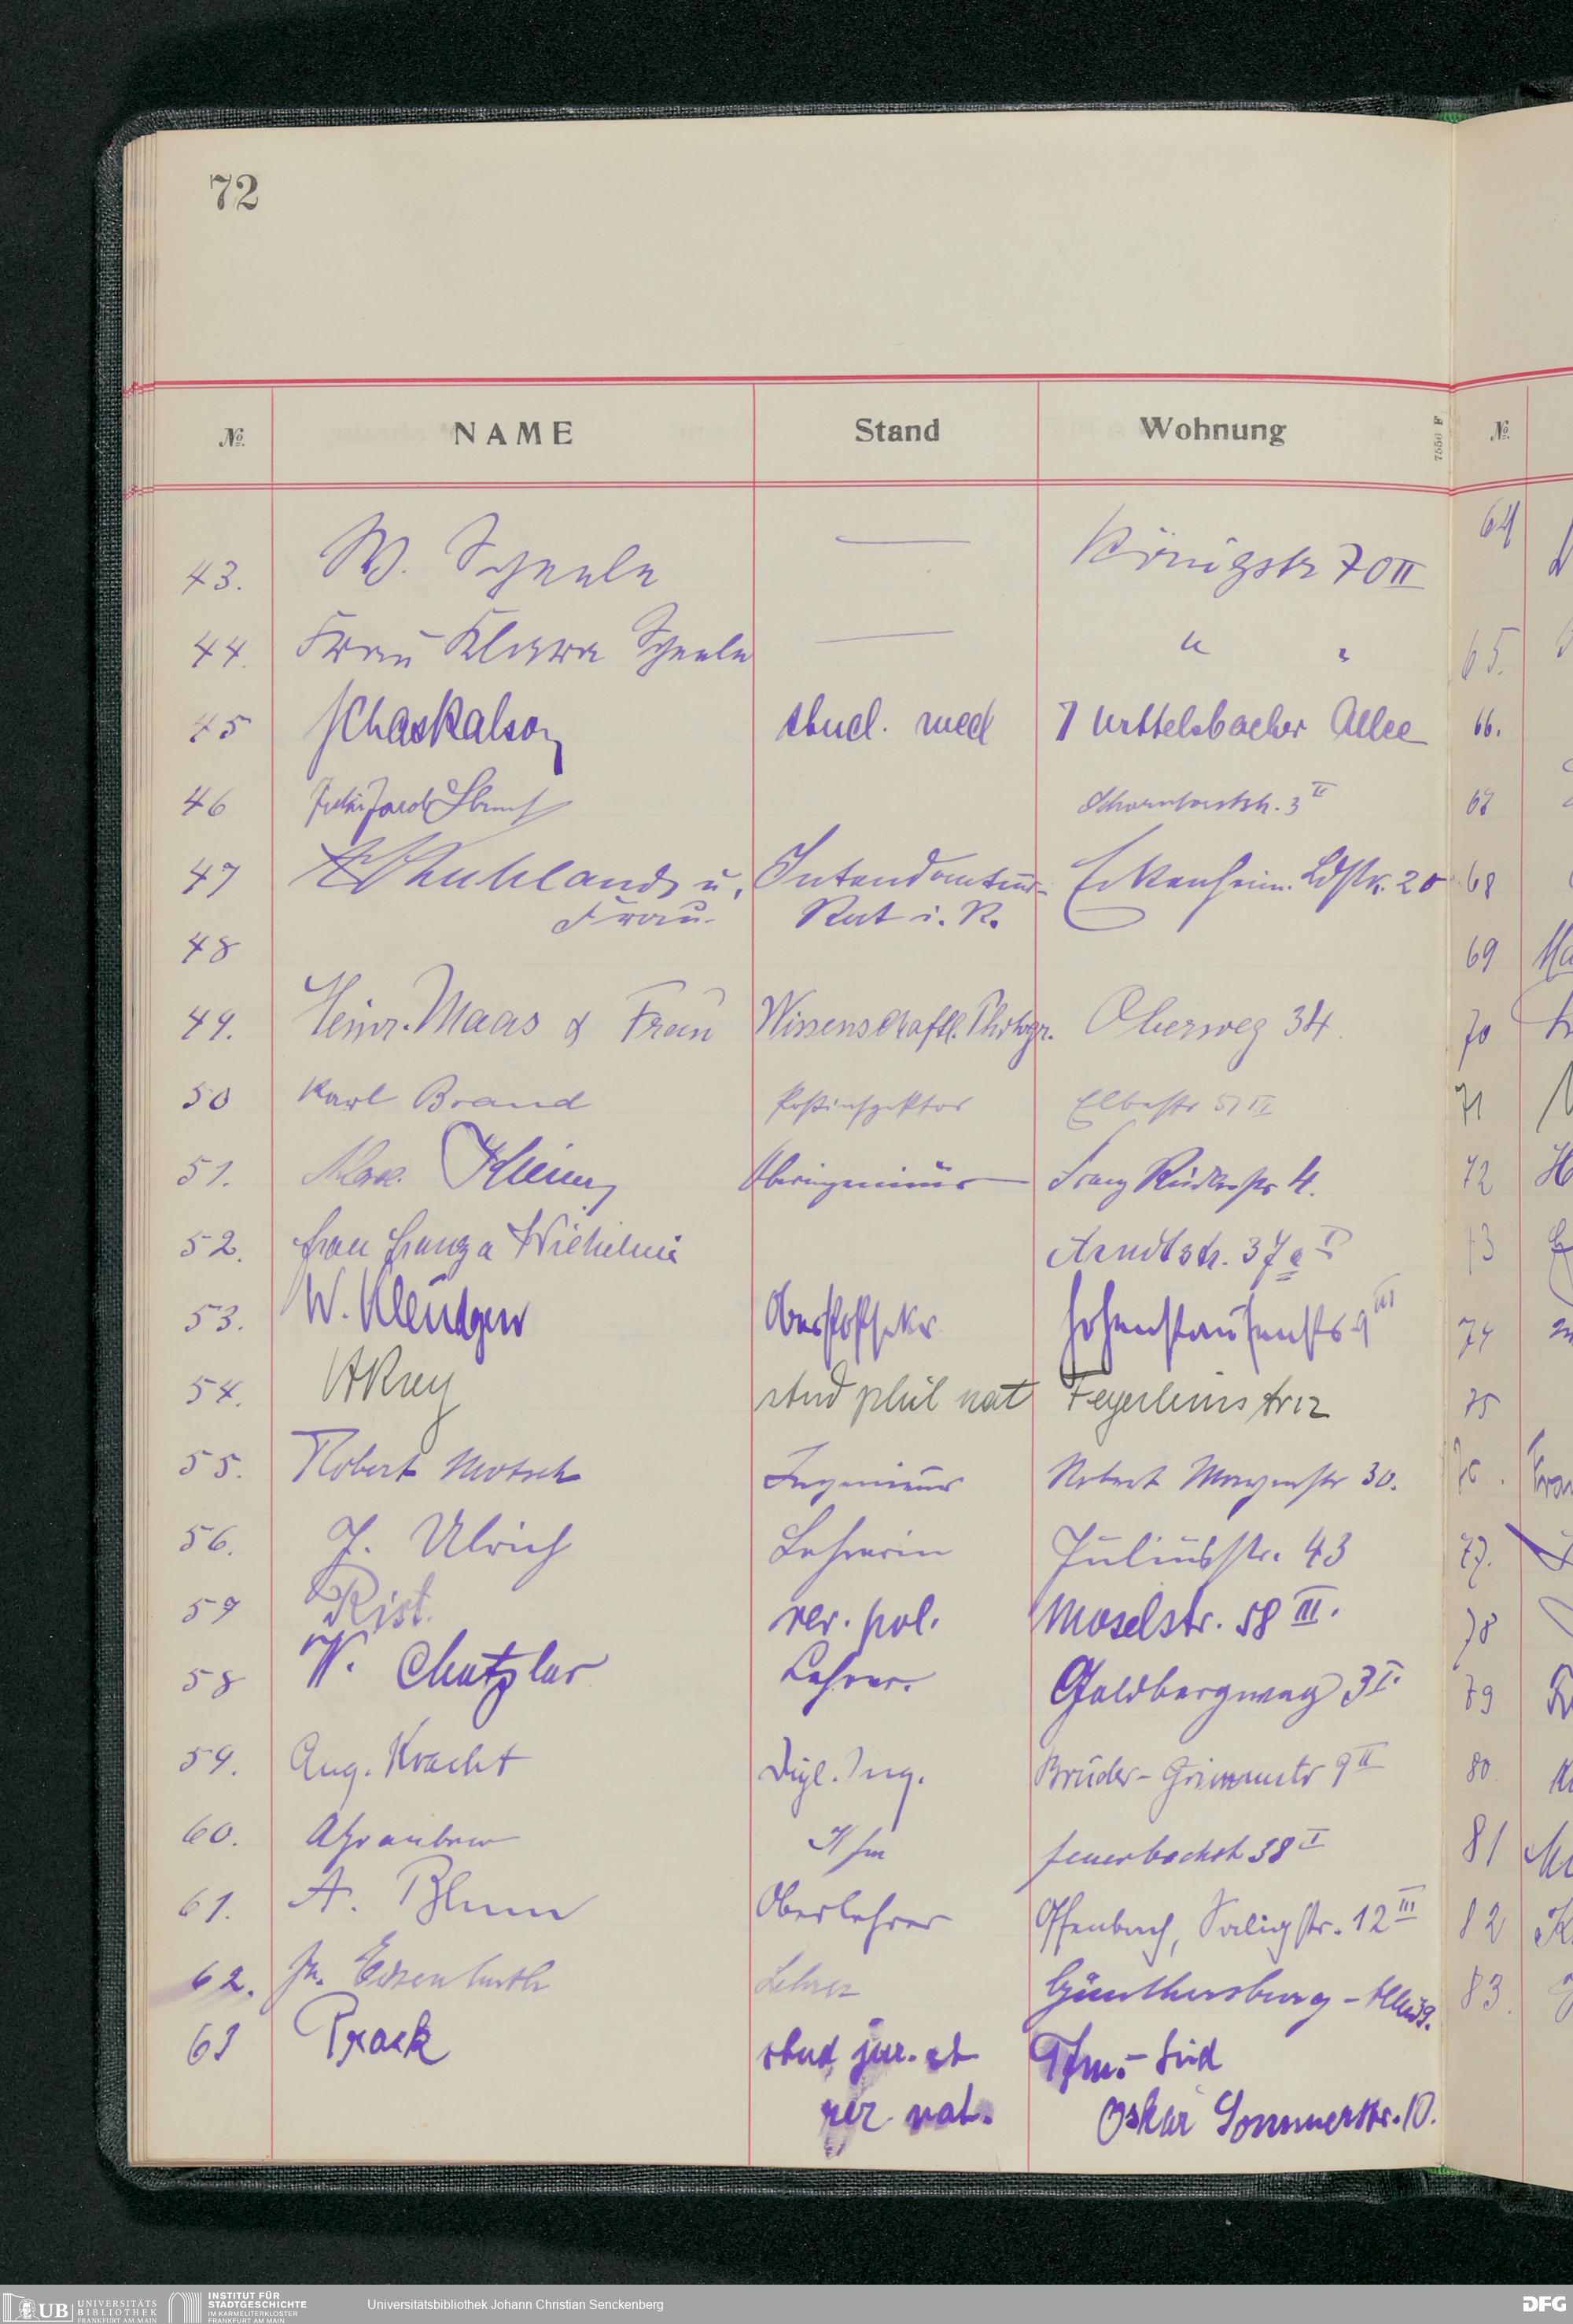 72
№ NAME Stand Wohnung 7556 F №
43. W. Scheele — Königstr 70 II 64
44. Frau Klara Scheele — " " 65.
45 Schaskalson stud. med 7 Wittelsbacher Allee 66.
46 Scharnhorststr. 3 II 67
47 Ruhland u. Intendantur- Eckenheim. Ldstr. 20 68
Frau. Rat i. R.
48 69
49. Heinr. Maas & Frau Wissenschaftl. Photogr. Oberweg 34. 70
50 Karl Brand Postinspektor Elbestr 51 II 71
51. Max Oberingenieur Franz Rückerstr 4. 72
52. Frau Franza Wilhelmi Arndtstr. 37 a I 73
53. W. Kleudgen Oberpostsekr. Hohenstaufenstr 9 III 74
54. stud phil nat Feyerleinstr 12 75
55. Robert Motsch Ingenieur Robert Mayerstr 30. 76.
56. J. Ulrich Lehrerin Juliusstr. 43 77.
57 Rist. rer. pol. Moselstr. 58 III. 78
58 W. Chatzlar Lehrer. Goldbergweg 3 I. 79
59. Aug. Kracht Dipl. Ing. Brüder-Grimmstr 9 II 80
60. Kfm Feuerbachstr 38 I 81
61. A. Blum Oberlehrer Offenbach, Saligstr. 12 III 82
62. Eisenhuth Lehrer Günthersburg- 83.
63 Prack stud jur. et Ffm.- Süd
rer. nat. Oskar Sommerstr. 10.
UB UNIVERSITÄTS
BIBLIOTHEK
FRANKFURT AM MAIN
INSTITUT FÜR
STADTGESCHICHTE
IM KARMELITERKLOSTER
FRANKFURT AM MAIN
Universitätsbibliothek Johann Christian Senckenberg
DFG